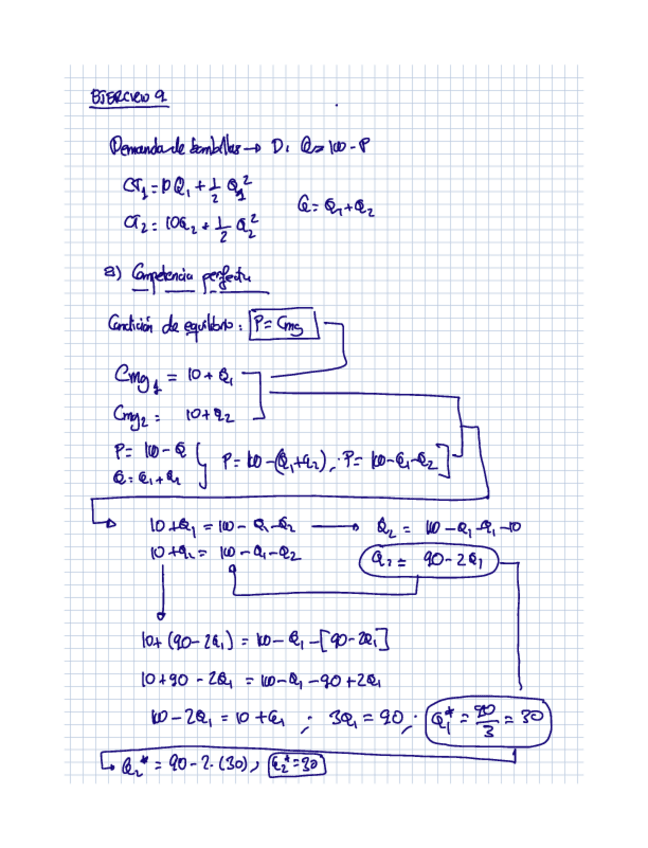 EJERCICIO 9
Demanda de bombillas → D: Q = 100 - P
CT₁ = 10Q₁ + 1/2 Q₁²
Q = Q₁ + Q₂
CT₂ = 10Q₂ + 1/2 Q₂²
a) Competencia perfecta
Condición de equilibrio: P = Cmg
Cmg₁ = 10 + Q₁
Cmg₂ = 10 + Q₂
P = 100 - Q
Q = Q₁ + Q₂
P = 100 - (Q₁ + Q₂); P = 100 - Q₁ - Q₂
10 + Q₁ = 100 - Q₁ - Q₂ → Q₂ = 100 - Q₁ - Q₁ - 10
10 + Q₂ = 100 - Q₁ - Q₂
Q₂ = 90 - 2Q₁
10 + (90 - 2Q₁) = 100 - Q₁ - [90 - 2Q₁]
10 + 90 - 2Q₁ = 100 - Q₁ - 90 + 2Q₁
100 - 2Q₁ = 10 + Q₁ ; 3Q₁ = 90 ; Q₁* = 90/3 = 30
Q₂* = 90 - 2·(30), Q₂* = 30